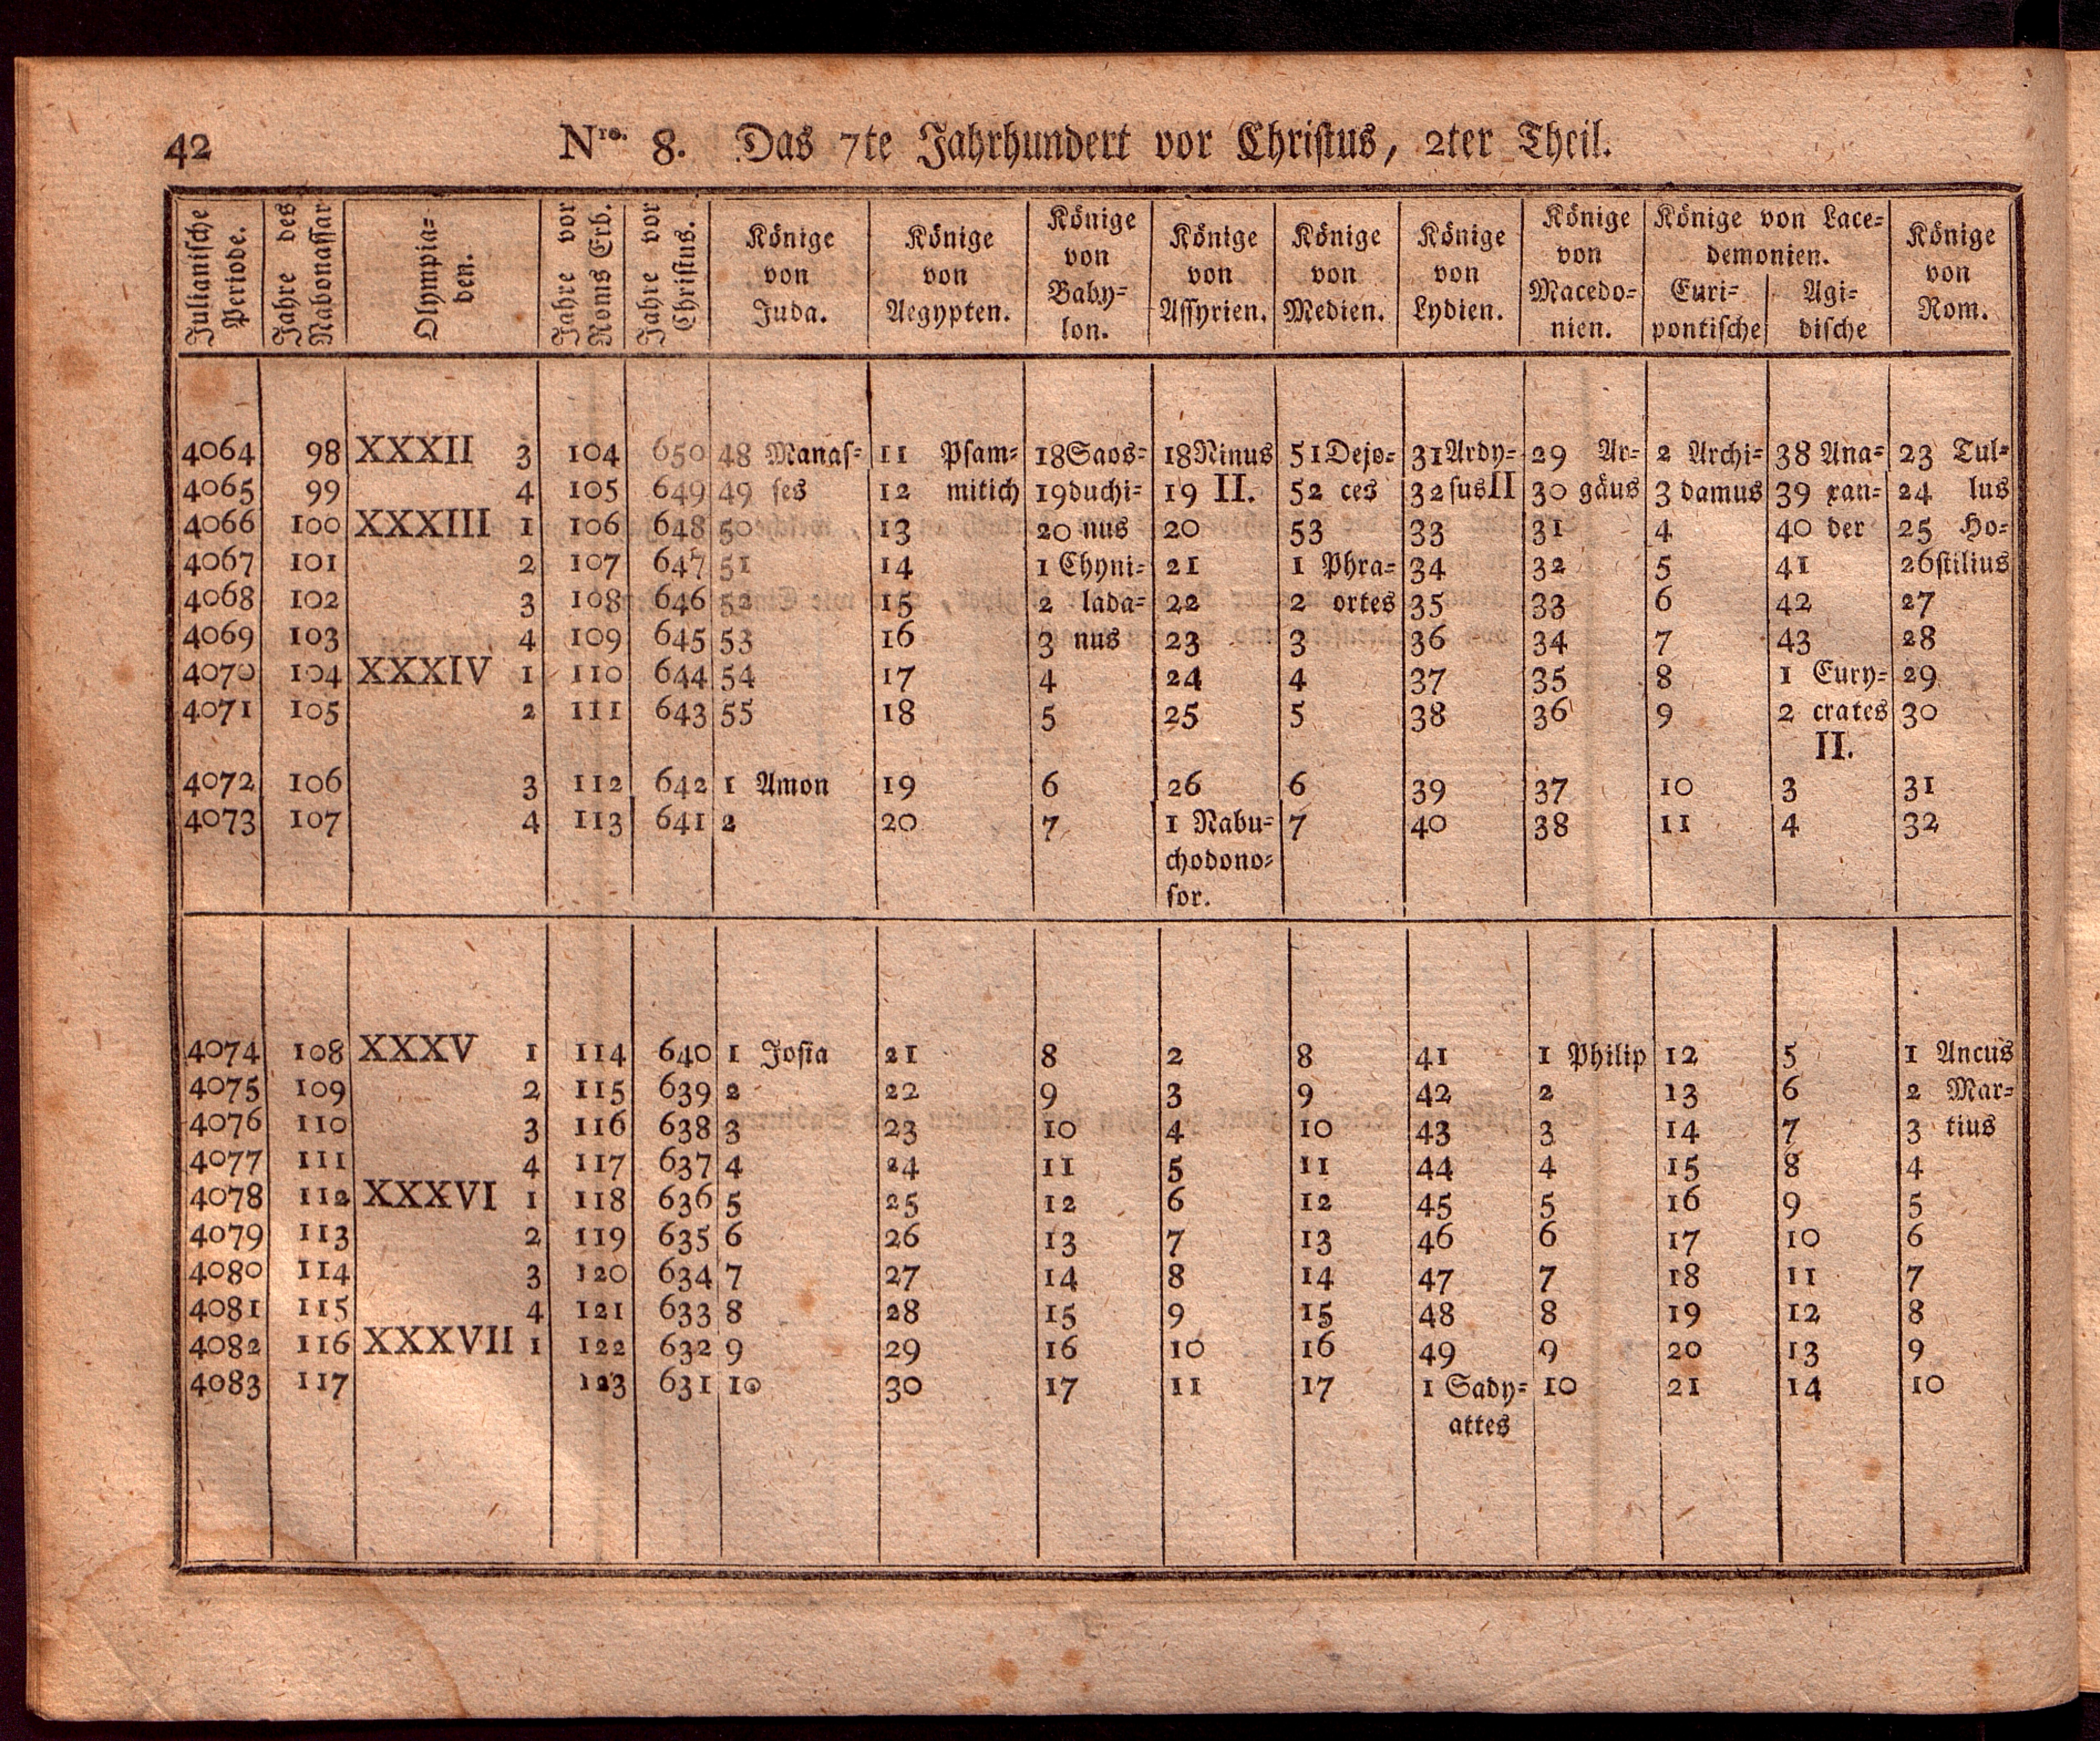 42 Nro. 8. Das 7te Jahrhundert vor Christus, 2ter Theil.
Julianische Periode. | Jahre des Nabonassar | Olympia= den. | Jahre vor Roms Erb. | Jahre vor Christus. | Könige von Juda. | Könige von Aegypten. | Könige von Baby= lon. | Könige von Assyrien. | Könige von Medien. | Könige von Lydien. | Könige von Macedo= nien. | Könige von Lace= demonien. Euri= pontische | Agi= dische | Könige von Rom.
4064 98 XXXII 3 104 650 48 Manas= 11 Psam= 18 Saos= 18 Ninus 51 Dejo= 31 Ardy= 29 Ar= 2 Archi= 38 Ana= 23 Tul=
4065 99 4 105 649 49 ses 12 mitich 19 duchi= 19 II. 52 ces 32 sus II 30 gäus 3 damus 39 xan= 24 lus
4066 100 XXXIII 1 106 648 50 13 20 nus 20 53 33 31 4 40 der 25 Ho=
4067 101 2 107 647 51 14 1 Chyni= 21 1 Phra= 34 32 5 41 26 stilius
4068 102 3 108 646 52 15 2 lada= 22 2 ortes 35 33 6 42 27
4069 103 4 109 645 53 16 3 nus 23 3 36 34 7 43 28
4070 104 XXXIV 1 110 644 54 17 4 24 4 37 35 8 1 Eury= 29
4071 105 2 111 643 55 18 5 25 5 38 36 9 2 crates 30
II.
4072 106 3 112 642 1 Amon 19 6 26 6 39 37 10 3 31
4073 107 4 113 641 2 20 7 1 Nabu= 7 40 38 11 4 32
chodono=
sor.
4074 108 XXXV 1 114 640 1 Josia 21 8 2 8 41 1 Philip 12 5 1 Ancus
4075 109 2 115 639 2 22 9 3 9 42 2 13 6 2 Mar=
4076 110 3 116 638 3 23 10 4 10 43 3 14 7 3 tius
4077 111 4 117 637 4 24 11 5 11 44 4 15 8 4
4078 112 XXXVI 1 118 636 5 25 12 6 12 45 5 16 9 5
4079 113 2 119 635 6 26 13 7 13 46 6 17 10 6
4080 114 3 120 634 7 27 14 8 14 47 7 18 11 7
4081 115 4 121 633 8 28 15 9 15 48 8 19 12 8
4082 116 XXXVII 1 122 632 9 29 16 10 16 49 9 20 13 9
4083 117 123 631 10 30 17 11 17 1 Sady= 10 21 14 10
attes